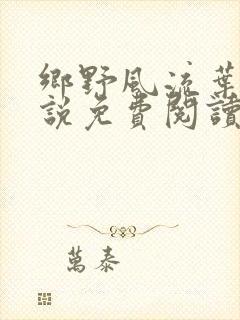 鄉野風流葉
說免費閱讀
萬泰